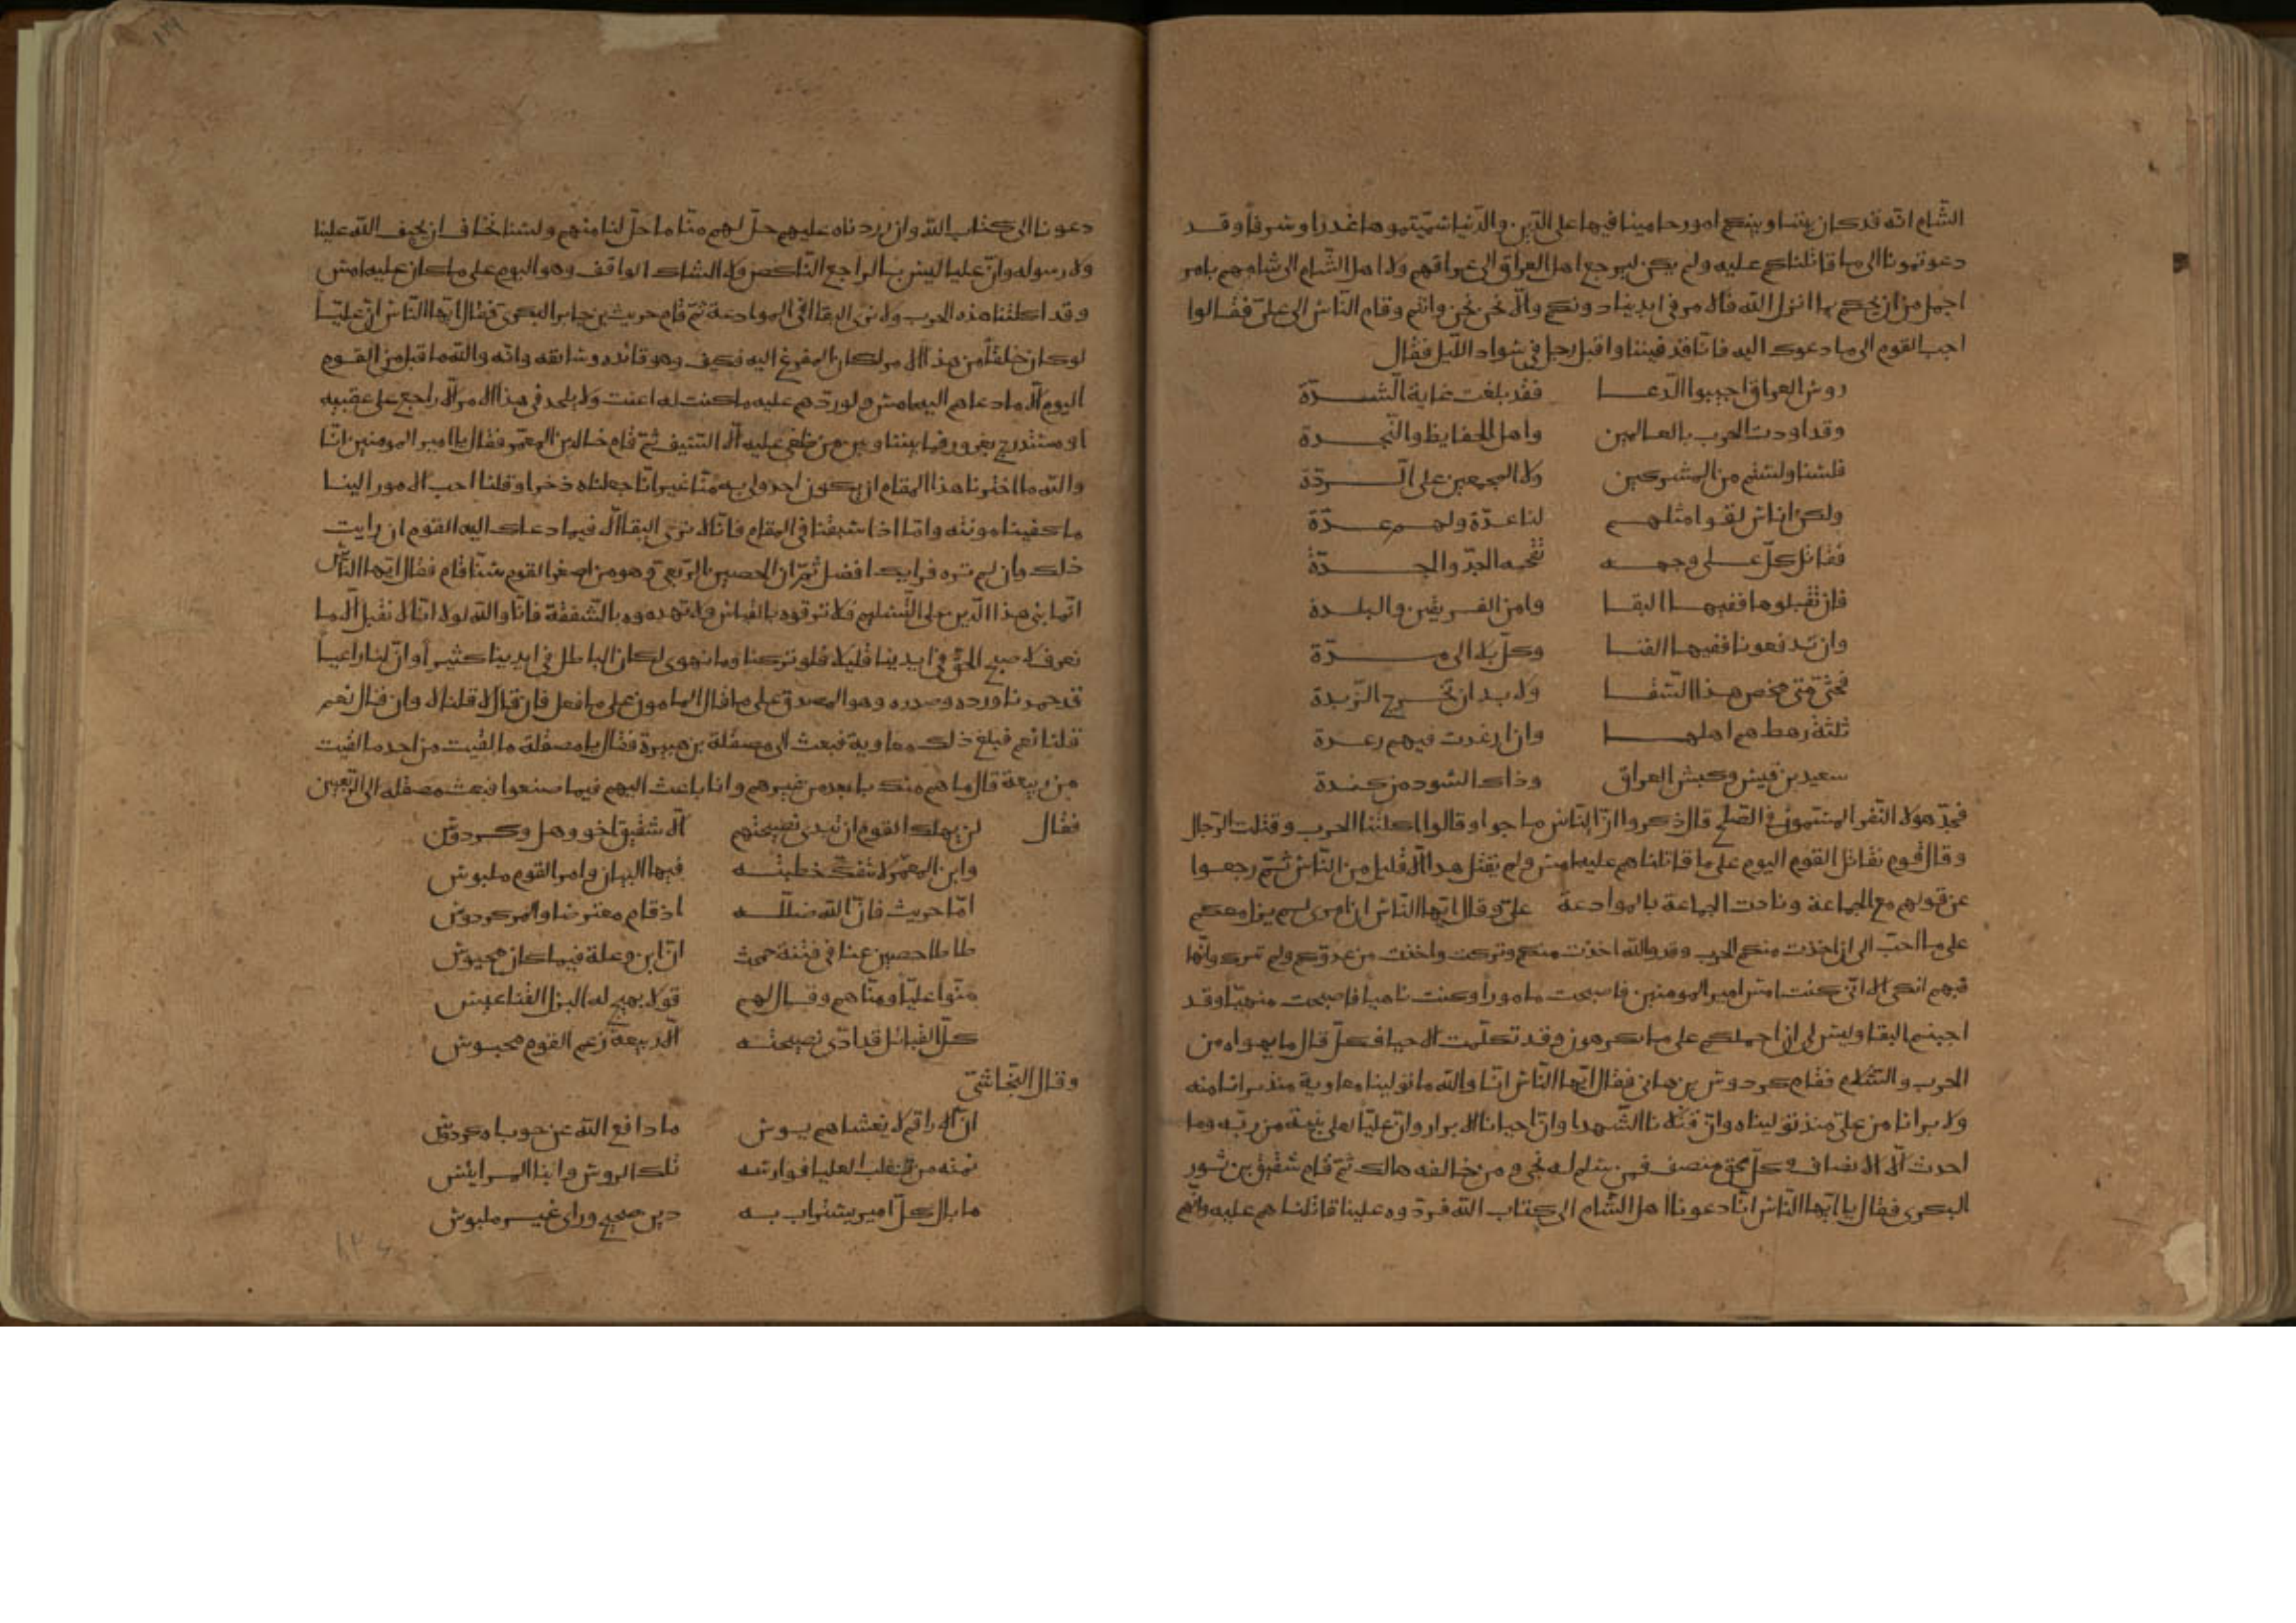 الشام انه قد كان بيننا وبينكم امور حامينا فيها على الدين والدنيا سميتموها غدرا وسرفا وقد
دعوتمونا الى ما قاتلناكم عليه ولم يكن ليرجع اهل العراق الى عراقهم ولا اهل الشام الى شامهم بامر
اجمل من ان يحكم بما انزل الله فالامر في ايدينا دونكم والا نحن نحن وانتم وقام الناس الى علي فقالوا
اجب القوم الى ما دعوك اليه فانا قد فنينا واقبل رجل في سواد الليل فقال
روس العراق اجيبوا الدعا فقد بلغت غاية الشدة
وقد اودت الحرب بالعالمين واهل الحفايظ والنجدة
فلسنا ولستم من المشركين ولا المجمعين على الردة
ولكن اناس لقوا مثلهم لنا عدة ولهم عدة
فقاتل كل على وجهه تقحمه الجد والحدة
فان تقبلوها ففيها البقا وامن الفريقين والبلدة
وان تدفعوها ففيها الفنا وكل بلا الى مدة
فحتى متى مخض هذا السقا ولا بد ان تخرج الزبدة
ثلثة رهط هم اهلها وان ارعدت فيهم رعدة
سعيد بن قيس وكبش العراق وذاك المسود من كندة
فحمد هولا النفر المسمون في الصلح قال ذكروا ان الناس ماجوا وقالوا اكلتنا الحرب وقتلت الرجال
وقال قوم نقاتل القوم اليوم على ما قاتلناهم عليه امس ولم يقتل هذا الا قليل من الناس ثم رجعوا
عن قولهم مع الجماعة ونادت الجماعة بالموادعة علي وقال ايها الناس ان امري لم يزل معكم
على ما احب الى ان اخذت منكم الحرب وقد والله اخذت منكم وتركت واخذت من عدوكم ولم تترك وانها
فيهم انكى الا اني كنت امس امير المومنين فاصبحت مامورا وكنت ناهيا فاصبحت منهيا وقد
احببتم البقا وليس لي ان احملكم على ما تكرهون وقد تكلمت الاحيا فكل قال ما يهواه من
الحرب والسلام فقام كردوس بن هاني فقال ايها الناس انا والله ما تولينا معاوية منذ برانا منه
ولا برانا من علي منذ توليناه وان قتلانا الشهدا وان احيانا الابرار وان عليا لعلى بينة من ربه وما
احدث الا الانصاف وكل محق منصف فمن سلم له نجى ومن خالفه هالك ثم قام شقيق بن ثور
البكرى فقال يا ايها الناس انا دعونا اهل الشام الى كتاب الله فردوه علينا قاتلناهم عليه وانهم
دعونا الى كتاب الله وان رددناه عليهم حل لهم منا ما حل لنا منهم ولسنا نخاف ان يحيف الله علينا
ولا رسوله وان عليا ليس بالراجع الناكص ولا الشاك الواقف وهو اليوم على ما كان عليه امس
وقد اكلتنا هذه الحرب ولا نرى البقا الا في الموادعة ثم قام حريث بن جابر البكرى فقال ايها الناس ان عليا
لو كان خلفا من هذا الامر لكان المفزع اليه فكيف وهو قائده وسائقه وانه والله ما قبل من القوم
اليوم الا ما دعاهم اليه امس ولو رده عليه ما كنت له اعنت ولا يلحد في هذا الامر الا راجع على عقبيه
او مستدرج بغرور فما بيننا وبين من طغى عليه الا السيف ثم قام خالد بن المعمر فقال يا امير المومنين انا
والله ما اخترنا هذا المقام ان يكون احد اولى به منا غير انا جعلناه ذخرا وقلنا احب الامور الينا
ما كفينا مونته واما اذا سبقنا في المقام فانا لا نرى البقا الا فيما دعاك اليه القوم ان رايت
ذلك وان لم تره فرايك افضل ثم ان الحصين الربعي وهو من اصغر القوم سنا قام فقال ايها الناس
انما بني هذا الدين على التسليم فلا توقوه بالقياس ولا تهدموه بالشفقة فانا والله لولا انا لا نقبل الا ما
نعرف لاصبح الحق في ايدينا قليلا فلو تركنا وما نهوى لكان الباطل في ايدينا كثيرا وان لنا راعيا
قد حمدنا ورده وصدره وهو المصدق على ما قال المامون على ما فعل فان قال لا قلنا لا وان قال نعم
قلنا نعم فبلغ ذلك معاوية فبعث الى مصقلة بن هبيرة فقال يا مصقلة ما لقيت من احد ما لقيت
من ربيعة قال ما هم منك بابعد من غيرهم وانا باعث اليهم فيما صنعوا فبعث مصقلة الى الربعيين
فقال لن يهلك القوم ان تبدى نصيحتهم الا شقيق اخو وهل وكردوس
وابن المعمر لا تنفك خطبته فيها البيان وامر القوم ملبوس
اما حريث فان الله ضلله اذ قام معترضا والمر كردوس
طاطا حصين عنا في فتنة جمحت ان ابن وعلة فيها كان محيوس
منوا عليا ومناهم وقال لهم قولا يهيج له البزل القناعيس
كل القبائل قد ادى نصيحته الا ربيعة زعم القوم محبوس
وقال النجاشي
ان الاراقم لا يغشاهم بوس ما دافع الله عن حوبا كردوس
نمته من تغلب العليا فوارسه تلك الروس وابنا المرايس
ما بال كل امير يستراب به دين صحيح وراى غير ملبوس